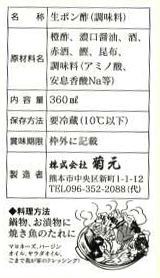 名称 生ポン酢(調味料)
原材料名 橙酢、濃口醤油、酒、
赤酒、鰹、昆布、
調味料(アミノ酸、
安息香酸Na等)
内容量 360㎖
保存方法 要冷蔵(10℃以下)
賞味期限 枠外に記載
製造者 株式会社 菊元
熊本市中央区新町1-1-12
TEL096-352-2088(代)
◆料理方法
鍋物、お漬物に
焼き魚のたれに
マヨネーズ、バージン
オイル、サラダオイル、
ごまで我が家のドレッシング!